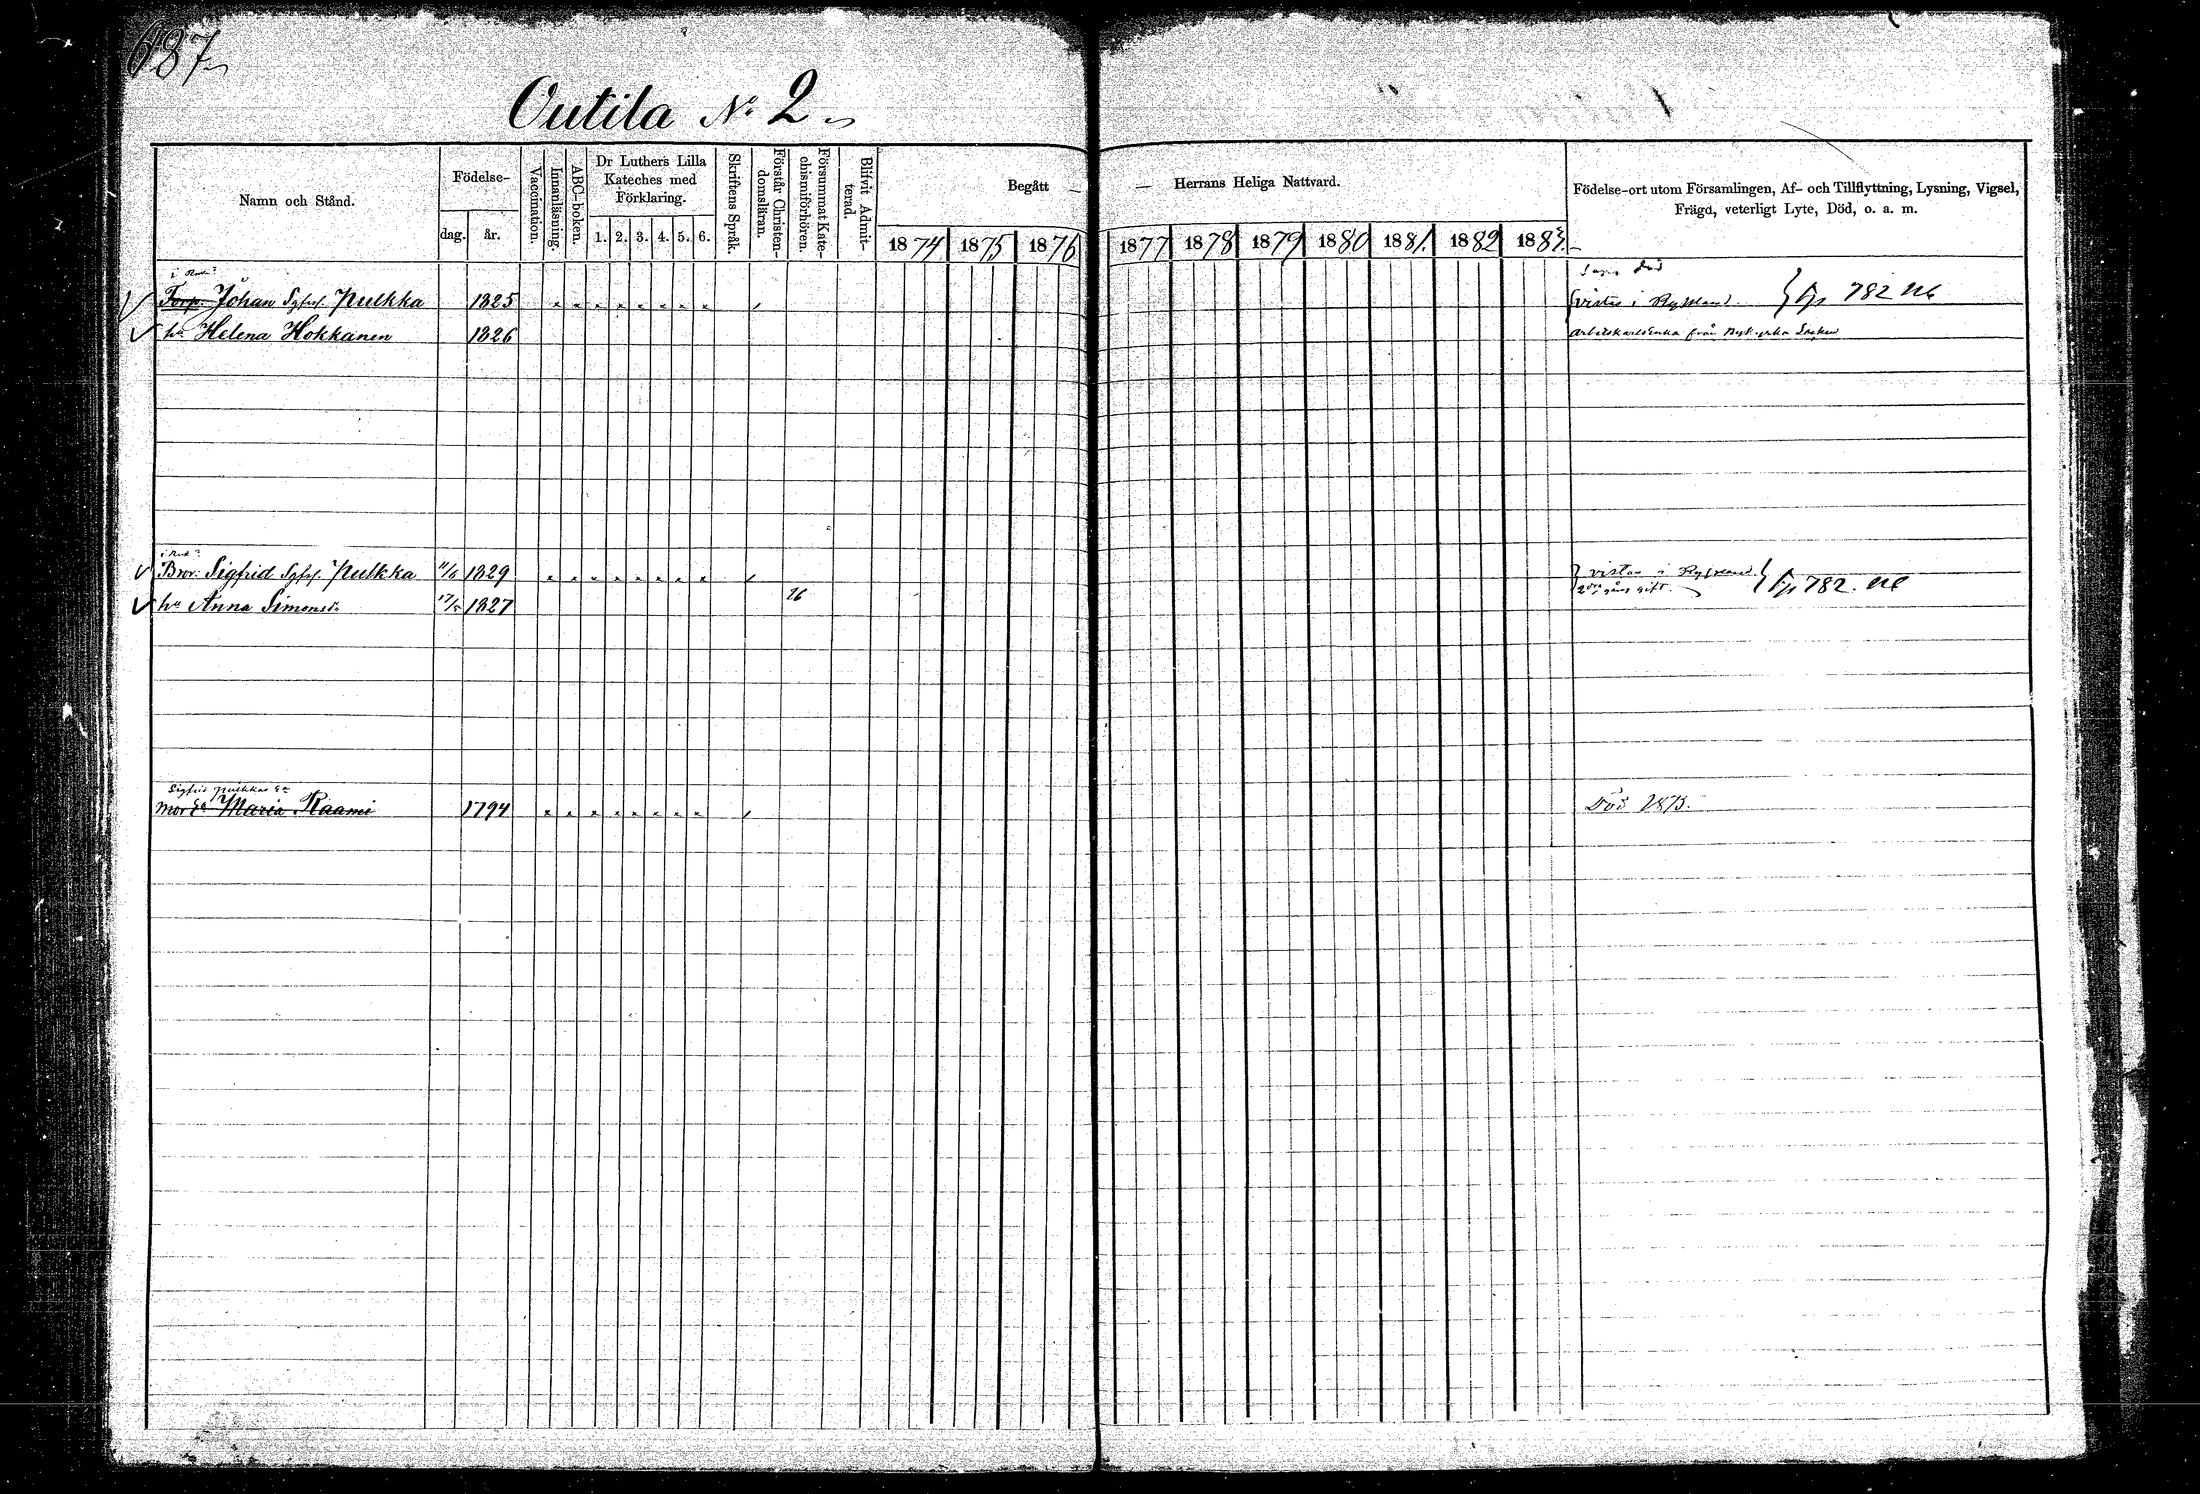 687
Outila No 2
Namn och Stånd.
Födelse-
dag.
år.
Vaccination.
Innanläsning.
ABC-boken.
Dr Luthers Lilla
Kateches med
Förklaring.
1. 2. 3. 4. 5. 6.
Skriftens Språk.
Förstår Christen-
domsläran.
Försummat Kate-
chismiförhören.
Blifvit Admit-
terad.
Begått — — Herrans Heliga Nattvard.
1874 1875 1876 1877 1878 1879 1880 1881. 1882 1883.
Födelse-ort utom Församlingen, Af- och Tillflyttning, Lysning, Vigsel,
Frägd, veterligt Lyte, Död, o. a. m.
död
Torp. Johan Sgfrs. Pulkka 1825 vistas i Ryssland. 782
hu Helena Hokkanen 1826 Arbetskarlsenka från
Bror: Sigfrid Sgfrs. Pulkka 1829 vistas i Ryssland
hu Anna Simonsdr 17/5 1827 26 gång gift. 782.
Sigfrid Pulkkas
Mor Maria Raami 1794 Död 1875.